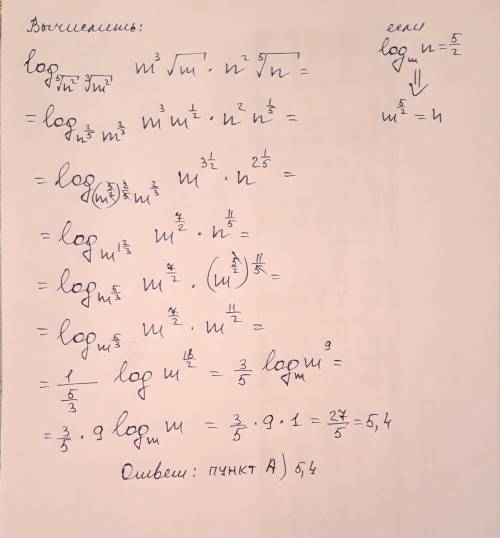 Вычислить:
если
log_m n = 5/2
⇓
m^(5/2) = n
log_(⁵√n² ³√m²) m³√m · n² ⁵√n =
= log_(n^(2/5) m^(2/3)) m³ m^(1/2) · n² n^(1/5) =
= log_((m^(5/2))^(2/5) m^(2/3)) m^(3 1/2) · n^(2 1/5) =
= log_(m^(1 2/3)) m^(7/2) · n^(11/5) =
= log_(m^(5/3)) m^(7/2) · (m^(5/2))^(11/5) =
= log_(m^(5/3)) m^(7/2) · m^(11/2) =
= 1/(5/3) log m^(18/2) = 3/5 log_m m^9 =
= 3/5 · 9 log_m m = 3/5 · 9 · 1 = 27/5 = 5,4
Ответ: пункт А) 5,4